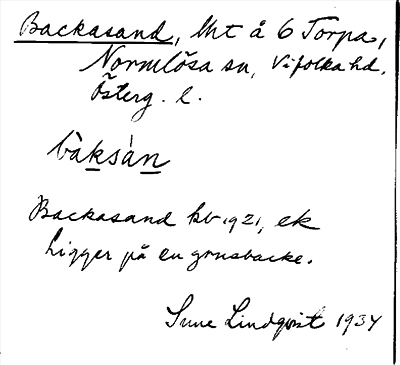 Backasand, lht å 6 Torpa,
Normlösa sn, Vifolka hd,
Österg. l.
bàksàn
Backasand kb 1921, ek
Ligger på en grusbacke.
Sune Lindqvist 1934